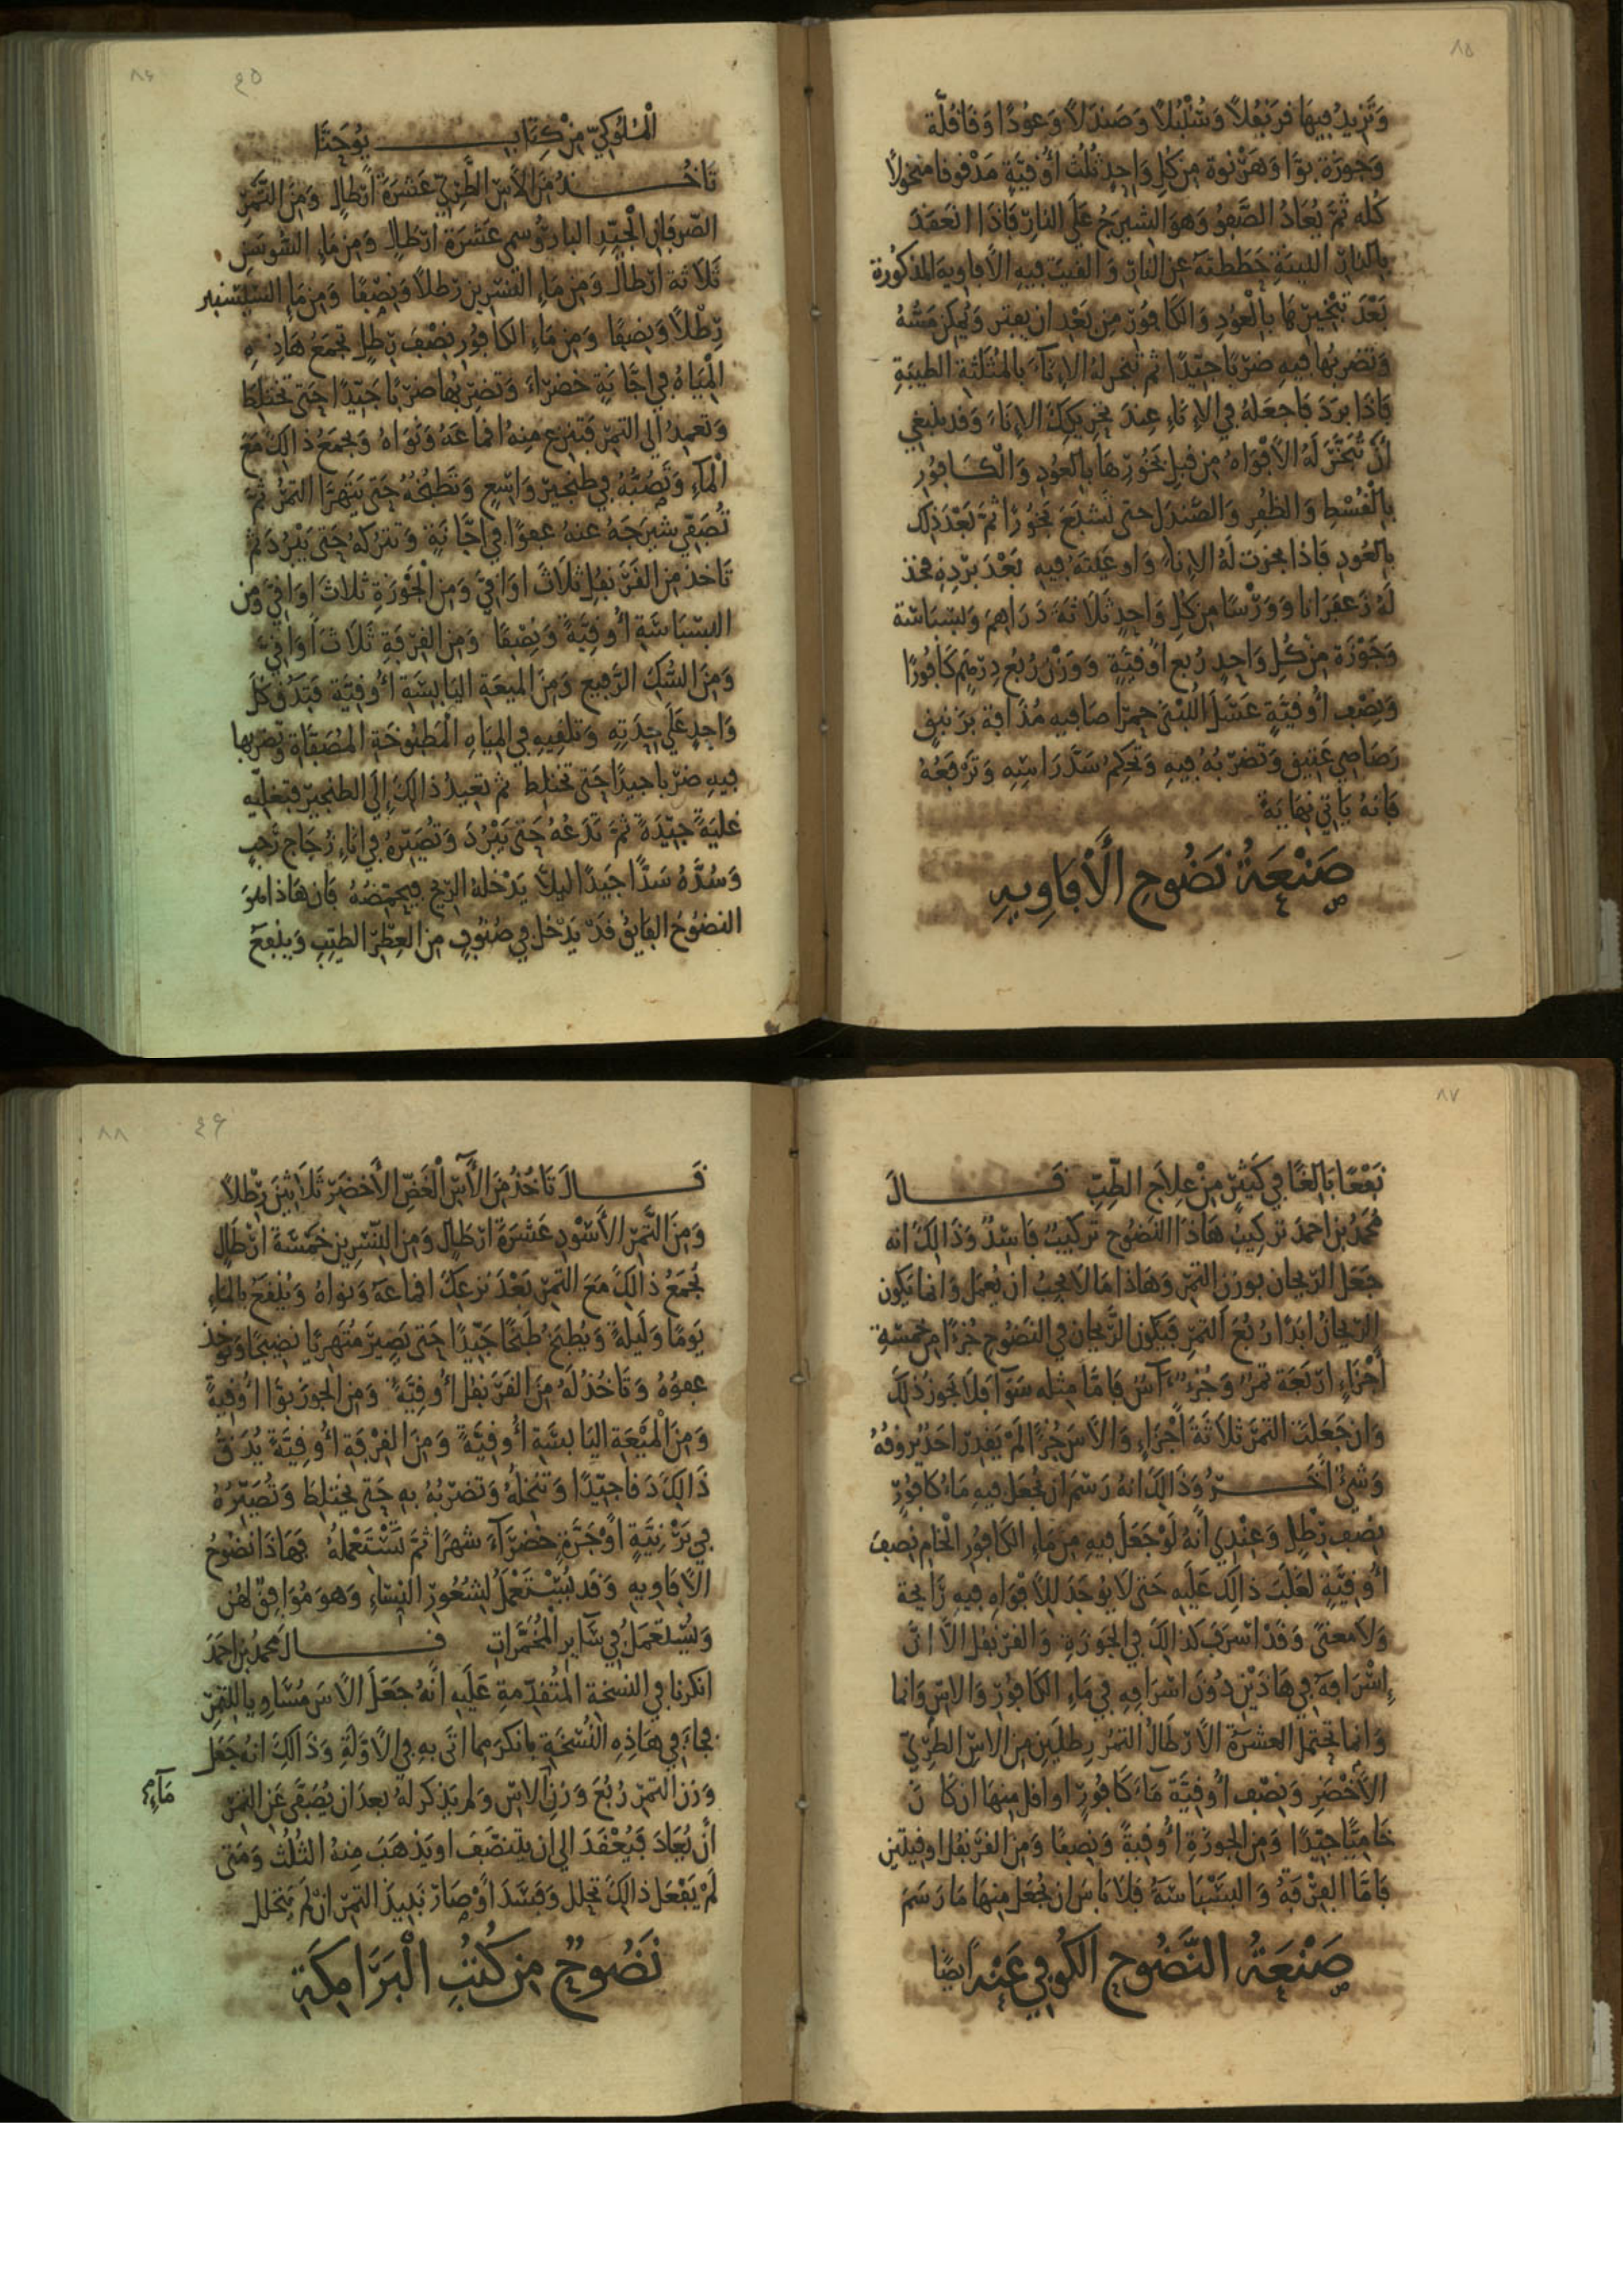 ٨٥
وَتَزِيدُ فِيهَا قَرَنْفُلاً وَسُنْبُلاً وَصَنْدَلاً وَعُودًا وَقَاقُلَّة
وَجَوْزَة بوَّا وَهَرْنوة مِن كل وَاحِدٍ ثُلُث أُوقيَّةٍ مَدْقوقا منخولاً
كُله ثمَّ يُعَادُ الصَّفوُ وَهوَ الشيرَجُ عَلَى النارِ فَاذَا انعَقَدَ
بالنار اللينَةِ حَططتَهُ عن النار وَالقيتَ فيهِ الأَفاويه المذكورة
بَعْدَ تبْخيرهَا بِالْعُودِ وَالكَافُورِ من بَعْد ان يفتر وَيُمكن مَسُّهُ
وَتضربُها فيهِ ضرْبا جَيّدًا ثم تُبخر لهُ الإنآءَ بِالمُثَلَّثَةِ الطيبَةِ
فَاذَا برَدَ فَاجعَلهُ في الإنَاءِ عِندَ تحريككَ الإنَاءَ وَقد ينبَغي
أَنْ تُبَخَّرَ لَهُ الأَفْوَاهُ مِن قبلِ بَخُورِهَا بِالعُودِ وَالْكَافُورِ
بِالْقُسْطِ وَالظفْرِ وَالصَّنْدَل حَتى تَشبَعَ بَخُورًا ثمَّ بَعْدَ ذَلكَ
بالعُودِ فَاذا بخرت لَهُ الإنَاءَ وَاوعَيْتَهُ فيهِ بَعْدَ بَرْدِهِ فخذ
لَهُ زَعفَرَانا وَوَرْسًا من كل وَاحدٍ ثَلَاثَةَ دَرَاهمَ وَبسْبَاسَة
وَجَوْزَة مِنْ كُلِ وَاحِدٍ رُبع أُوقيَّةٍ وَوَزْن رُبُع دِرْهَم كَافُورًا
وَنِصْف أُوقيَّةٍ عَسَل اللُبْنَى حمرَا صَافيه مُذَافَة بزَنبَقٍ
رَصَاصي عَتيقٍ وَتضرْبُهُ فيهِ وَتُحكِمُ سَدَّ رَاسِهِ وَتَرْفَعُهُ
فَانهُ يَاتي نِهَايَةً
صَنْعَةُ نَضُوحِ الأَفَاوِيهِ
٨٦
٤٥
الْمُلُوكِيِّ مِنْ كِتَابِ يُوحَنَّا
تَاخُذُ مِنَ الآسِ الطَّرِيِّ عَشرَةَ أَرْطَالٍ وَمِنَ التَّمْرِ
الصّرفَانِ الْجَيِّدِ البَارِ وُسمي عَشرَة ارطَالٍ وَمِن مَاءِ السُّوسَنِ
ثَلَاثَة ارْطَالٍ وَمِن مَاءِ النسْرِينِ رطلاً وَنِصْفًا وَمِن مَاءِ السّيسَنبر
رِطْلاً وَنِصفًا وَمِن مَاءِ الكافُورِ نِصْف رطلٍ تجمَعُ هَاذِهِ
الْمِيَاهُ في اجَّانَةٍ خَضرَاءَ وَتَضرِبُهَا ضرْبًا جَيّدًا حَتى تختلِط
وَتعمِدُ الى التمر فَتنزع مِنهُ اقماعَهُ وَنَوَاهُ وَتجمَعُ ذالكَ مَعَ
الْمَاءِ وَتَصُبُّهُ في طِنْجِيرٍ وَاسِعٍ وَتَطبخهُ حَتى يَتَهرَّا التمْرُ ثمَّ
تُصَفّي شيرَجَهُ عنهُ عفوًا في اجَّانَةٍ وَتتركهُ حَتى يَبْرُدَ ثم
تَاخذ من القَرَنفُل ثلَاثَ اوَاقيَّ وَمِنَ الْجَوْزَةِ ثلاثَ اوَاقيَّ وَمِن
البسْبَاسَةِ أُوقِيَّةً وَنِصْفًا وَمِن القِرْفَةِ ثَلَاثَ اوَاقيَّ
وَمِنَ السُّكِ الرَّفيعِ وَمِنَ الميعَةِ اليَابِسَةِ أُوقيَّة فَتَدُقُّ كلَّ
وَاحِدٍ عَلَى حِدَتِهِ وَتُلقيهِ في المِيَاهِ الْمَطبُوخَةِ المُصَفَّاةِ وَتضربها
فيهِ ضرْبا جيدًا حَتى تختلِط ثم تعيدُ ذالكَ إلَى الطنجير فتغليه
غليَةً جَيِّدَةً ثمَّ تَدَعُهُ حَتى يَبْرُدَ وَتُصَيّرهُ في انَاءِ زُجَاجٍ رَحِبٍ
وَسُدَّهُ سَدًّا جَيّدًا ليلاَّ يَدْخلهُ الرّيحُ فيحمضُهُ فَان هَاذَا هُوَ
النضُوحُ الفَايقُ قَدْ يَدْخُل في صُنُوفٍ مِن العِطْرِ الطيّبِ وَينفعُ
٨٧
نَفْعًا بَالِغًا في كَثِيرٍ مِنْ عِلَاجِ الطِّبِّ قَالَ
مُحَمَّدُ بن احمدَ تركِيبُ هَاذَا النَضُوحِ تَركيبٌ فَاسِدٌ وَذَالِكَ انه
جَعَل الرّيحَان بوَزنِ التمْرِ وَهَاذا مَا لَا يَجِبُ ان يُعمَلَ وَانمَا يَكون
الرّيحَانُ ابَدًا رُبُعَ التمرِ فَيَكون الرَّيحَان في النَضُوحِ جُزءًا من خمسَةِ
أَجْزَاءٍ ارْبَعَة تمرٌ وَجُزءٌ آسٌ فَامَّا مِثله سَوَآ فلَا يَجوزُ ذلكَ
وَان جَعَلتَ التمرَ ثلَاثَةَ أَجْزَاءٍ وَالآسَ جُزءًا لمْ يَقدِر احَدٌ يَرُوقهُ
وَشَيٌ آخَرُ وَذَالِكَ انهُ رَسَمَ ان تُجعَل فيهِ مَاءُ كَافُورٍ
نِصف رِطلٍ وَعِنْدي أَنَّهُ لَوْ جَعَل فيهِ مِن مَاءِ الكافُورِ الخام نِصفَ
أُوقيَّةٍ لَغَلَبَ ذالِكَ عَلَيهِ حَتى لَا يُوجَدَ لِلأَفوَاهِ فيهِ رَايحة
وَلَا مَعنًى وَقَدْ اسْرَفَ كذَالِكَ في الجَوزَةِ وَالقَرنفُل الاَّ انَّ
إِسْرَافَهُ في هَاذَيْنِ دُونَ اسْرَافهِ في مَاءِ الكَافُورِ وَالآسِ وَانمَا
وَانما تحتمِل العشرَةُ الارطَالُ التمرُ رِطلَينِ مِن الآسِ الطرِيِّ
الأَخْضَرِ وَنِصْف أُوقيَّة مَآءَ كَافُورٍ او اقل مِنهَا ان كَانَ
خَاميًّا جَيّدًا وَمِن الجَوزَةِ أُوقيةً وَنِصفًا وَمِن القَرَنفُل اوقيتين
فَامَّا القِرْفَةُ وَالبَسْبَاسَةُ فَلَا بَاسَ ان تُجعَل مِنهَا مَا رَسَمَ
صَنْعَةُ النَّضُوحِ الكُوفي عَنْهُ أَيضًا
٨٨
٤٦
قَالَ تَاخُذُ مِنَ الآسِ الْغَضِّ الأَخضَرِ ثَلَاثِينَ رِطْلاً
وَمِنَ التَّمْرِ الأَسْوَدِ عَشرَةَ ارطَالٍ وَمِنَ النّسْرِينِ خَمْسَة ارْطَالٍ
تجمَعُ ذالِكَ مَعَ التمْرِ بَعْدَ نزعِكَ اقماعَهُ وَنَوَاهُ وَيُنقَعُ بالمَاءِ
يَومًا وَلَيلَةً وَيُطبَخُ طَبْخًا جَيّدًا حَتى يَصِيرَ مُتَهَرِيًا نضِيجًا وَتوخذ
عفوُهُ وَتَاخُذُ لَهُ مِنَ القَرَنفُلِ أُوقِيَّةً وَمِنَ الجوز بوَّا أُوقيةً
وَمِنَ الْمَيْعَةِ اليَابسَةِ أُوقيَّةً وَمِنَ القِرْفَةِ أُوقيَّةً يُدَقُّ
ذَالِكَ دَقًّا جَيّدًا وَتَنخلُهُ وَتضربُهُ بهِ حَتى يختلِطَ وَتُصَيّرُهُ
في بَرْنيَّةٍ أَوْ جَرَّةٍ خَضرَآءَ شَهرًا ثمَّ تَسْتَعْمِلهُ فَهَاذَا نَضُوحُ
الأَفَاوِيهِ وَقَد يُسْتَعْمَلُ لِشعُورِ النِسَاءِ وَهوَ مُوَافِقٌ لهُن
وَيُسْتَعمَلُ في سَآيرِ الْمُخَمَّرَاتِ قَالَ مُحَمَّدُ بن احمَدَ
انكَرنا في النسخَةِ المُتَقدّمةِ عَلَيهِ انَّهُ جَعَلَ الآسَ مُسَاوِيا لِلتَّمْرِ
فجاءَ في هَاذِهِ النُّسْخَةِ بِانكَرَ مما اتَى بهِ في الأَوَّلَةِ وَذَالكَ انهُ جَعَل
وَزنَ التمْرِ رُبُعَ وَزنِ الآسِ وَلم يَذكر لهُ بعدَ ان يُصَفَّى عَن التمرِ
مَآءٍ
أَنْ يُعَادَ فَيُعْقَدَ الى ان يتنصَّفَ او يَذهَبَ مِنهُ الثُلُثُ وَمَتى
لَمْ يَفْعَل ذالكَ تخلل وَفَسَدَ أَوْ صَارَ نَبيذَ التمْرِ ان لم يَتخلل
نَضُوحٌ مِن كُتُبِ الْبَرَامِكَةِ